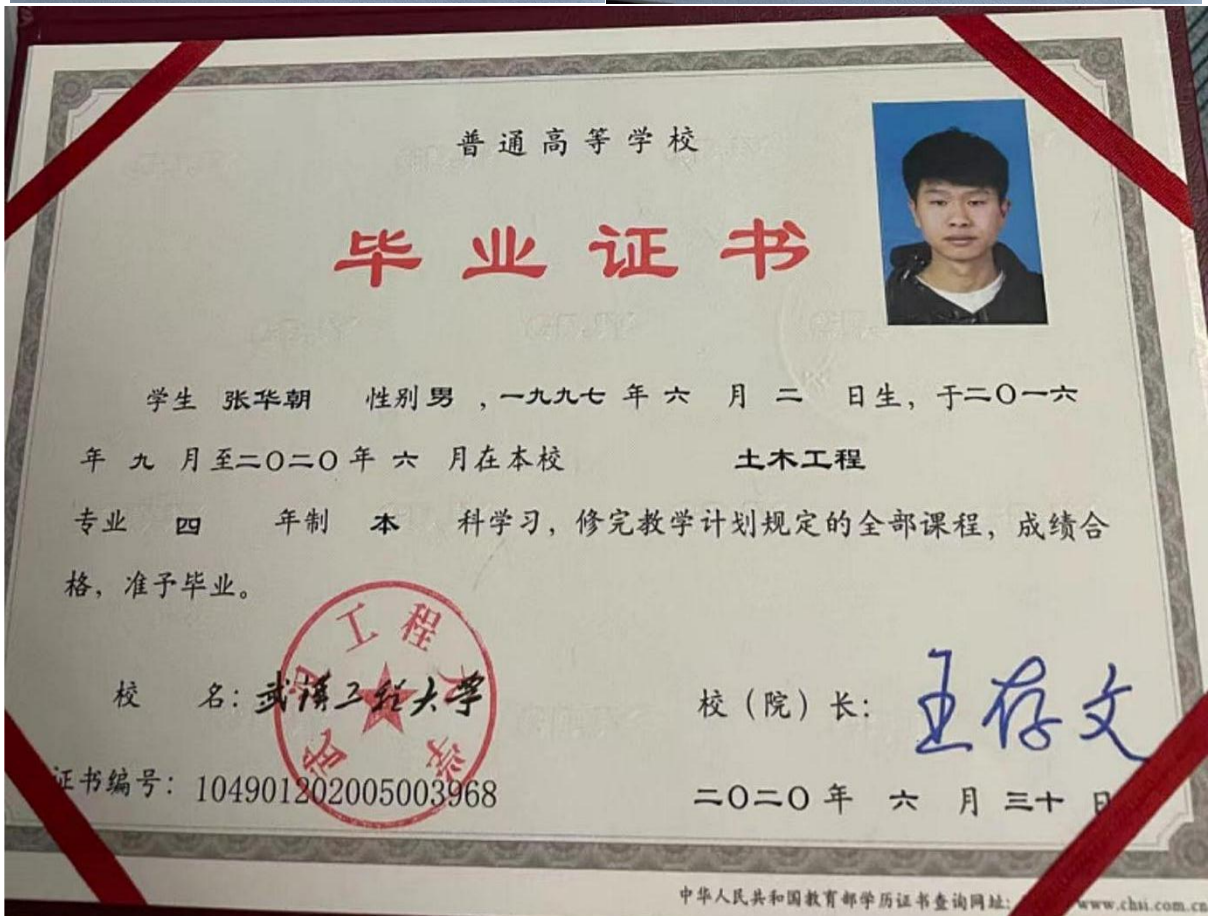 普通高等学校
毕业证书
学生 张华朝 性别 男 ,一九九七 年 六 月 二 日生，于二〇一六
年 九 月至二〇二〇 年 六 月在本校 土木工程
专业 四 年制 本 科学习，修完教学计划规定的全部课程，成绩合
格，准予毕业。
武汉工程大学
校 名：武汉工程大学
校（院）长：王存文
证书编号：104901202005003968
二〇二〇 年 六 月 三十 日
中华人民共和国教育部学历证书查询网址：www.chsi.com.cn